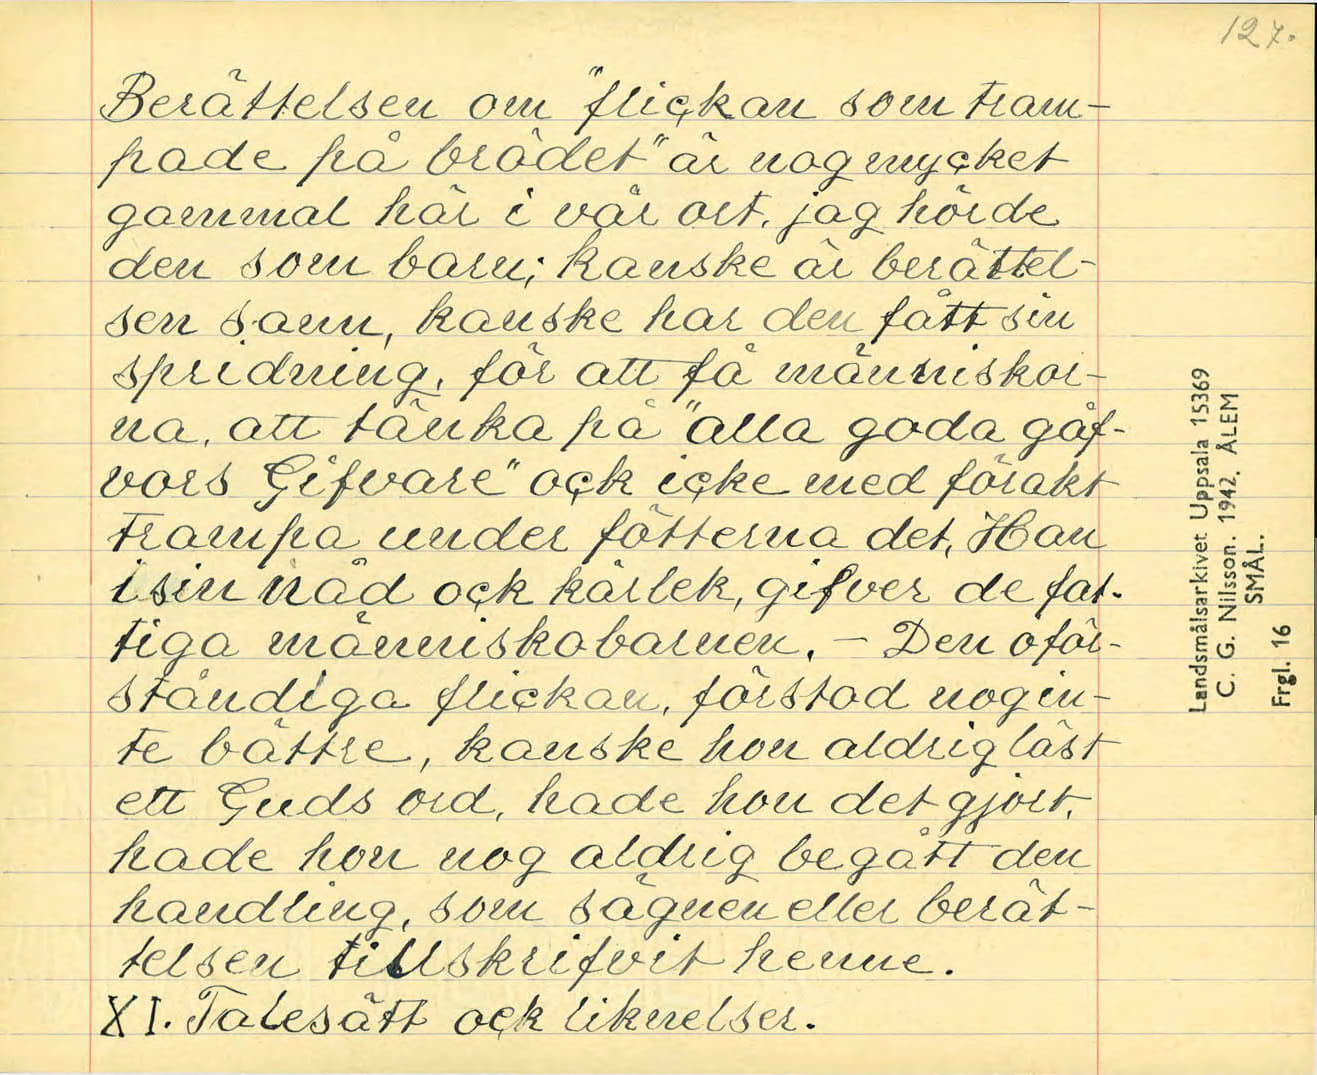 127.
Berättelsen om "flickan som tram-
pade på brödet" är nog mycket
gammal här i vår ort, jag hörde
den som barn; kanske är berättel-
sen sann, kanske har den fått sin
spridning, för att få människor-
na, att tänka på "alla goda gåf-
vors Gifvare" ock icke med förakt
trampa under fötterna det, Han
i sin nåd ock kärlek, gifver de fat-
tiga människobarnen. – Den oför-
ståndiga flickan, förstod nog in-
te bättre, kanske hon aldrig läst
ett Guds ord, hade hon det gjort,
hade hon nog aldrig begått den
handling, som sägnen eller berät-
telsen tillskrifvit henne.
XI. Talesätt ock liknelser.
Landsmålsarkivet Uppsala 15369
C. G. Nilsson. 1942. ÅLEM
SMÅL.
Frgl. 16